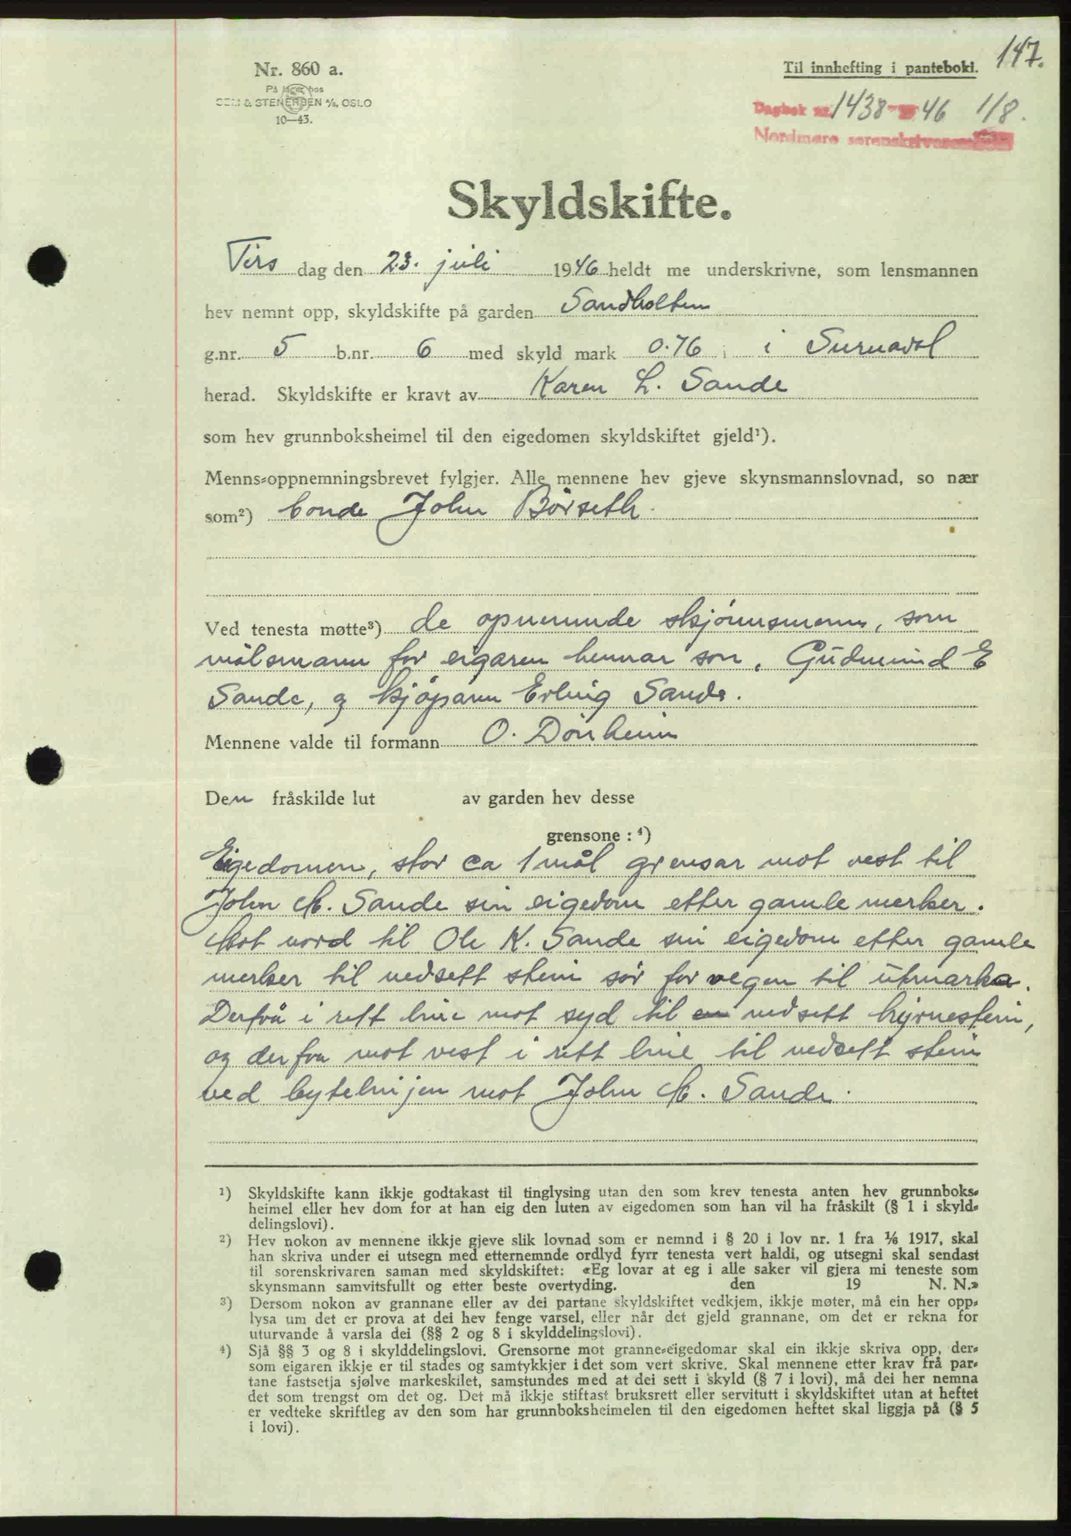 147.
Nr. 860 a.
På lager hos
SEM & STENERSEN A/S, OSLO
10—43.
Til innhefting i panteboki.
Dagbok nr. 1438 - 46 1/8.
Nordmøre sorenskriverembede
Skyldskifte.
Tirs dag den 23. juli 1946 heldt me underskrivne, som lensmannen
hev nemnt opp, skyldskifte på garden Sandholten
g.nr. 5 b.nr. 6 med skyld mark 0.76 i Surnadal
herad. Skyldskifte er kravt av Karen L. Sande
som hev grunnboksheimel til den eigedomen skyldskiftet gjeld¹).
Menns-oppnemningsbrevet fylgjer. Alle mennene hev gjeve skynsmannslovnad, so nær
som²) bonde John Børseth.
Ved tenesta møtte³) de opnemnde skjønnsmenn, som
målsmann for eigaren hennar son, Gudmund E
Sande, og kjøparen Erling Sande.
Mennene valde til formann O. Dønheim
Den fråskilde lut av garden hev desse
grensone : ⁴)
Eigedomen, stor ca 1 mål grensar mot vest til
John M. Sande sin eigedom etter gamle merker.
Mot nord til Ole K. Sande sin eigedom etter gamle
merker til nedsett stein sør for vegen til utmarka.
Derfrå i rett line mot syd til nedsett hjørnestein,
og derfra mot vest i rett line til nedsett stein
ved bytelinjen mot John M. Sande.
¹) Skyldskifte kann ikkje godtakast til tinglysing utan den som krev tenesta anten hev grunnboks-
heimel eller hev dom for at han eig den luten av eigedomen som han vil ha fråskilt (§ 1 i skyld-
delingslovi).
²) Hev nokon av mennene ikkje gjeve slik lovnad som er nemnd i § 20 i lov nr. 1 fra 1/6 1917, skal
han skriva under ei utsegn med etternemnde ordlyd fyrr tenesta vert haldi, og utsegni skal sendast
til sorenskrivaren saman med skyldskiftet: «Eg lovar at eg i alle saker vil gjera mi teneste som
skynsmann samvitsfullt og etter beste overtyding. den 19 N. N.»
³) Dersom nokon av grannane eller av dei partane skyldskiftet vedkjem, ikkje møter, må ein her opp-
lysa um det er prova at dei hev fenge varsel, eller når det gjeld grannane, om det er rekna for
uturvande å varsla dei (§§ 2 og 8 i skylddelingslovi).
⁴) Sjå §§ 3 og 8 i skylddelingslovi. Grensorne mot granne-eigedomar skal ein ikkje skriva opp, der-
som eigaren ikkje er til stades og samtykkjer i det som vert skrive. Skal mennene etter krav frå par-
tane fastsetja sjølve markeskilet, samstundes med at dei sett i skyld (§ 7 i lovi), må dei her nemna
det som trengst om det og. Det må ikkje stiftast bruksrett eller servitutt i skyldskiftet utan at heftet
er vedteke skriftleg av den som har grunnboksheimelen til den eigedomen heftet skal liggja på (§ 5
i lovi).